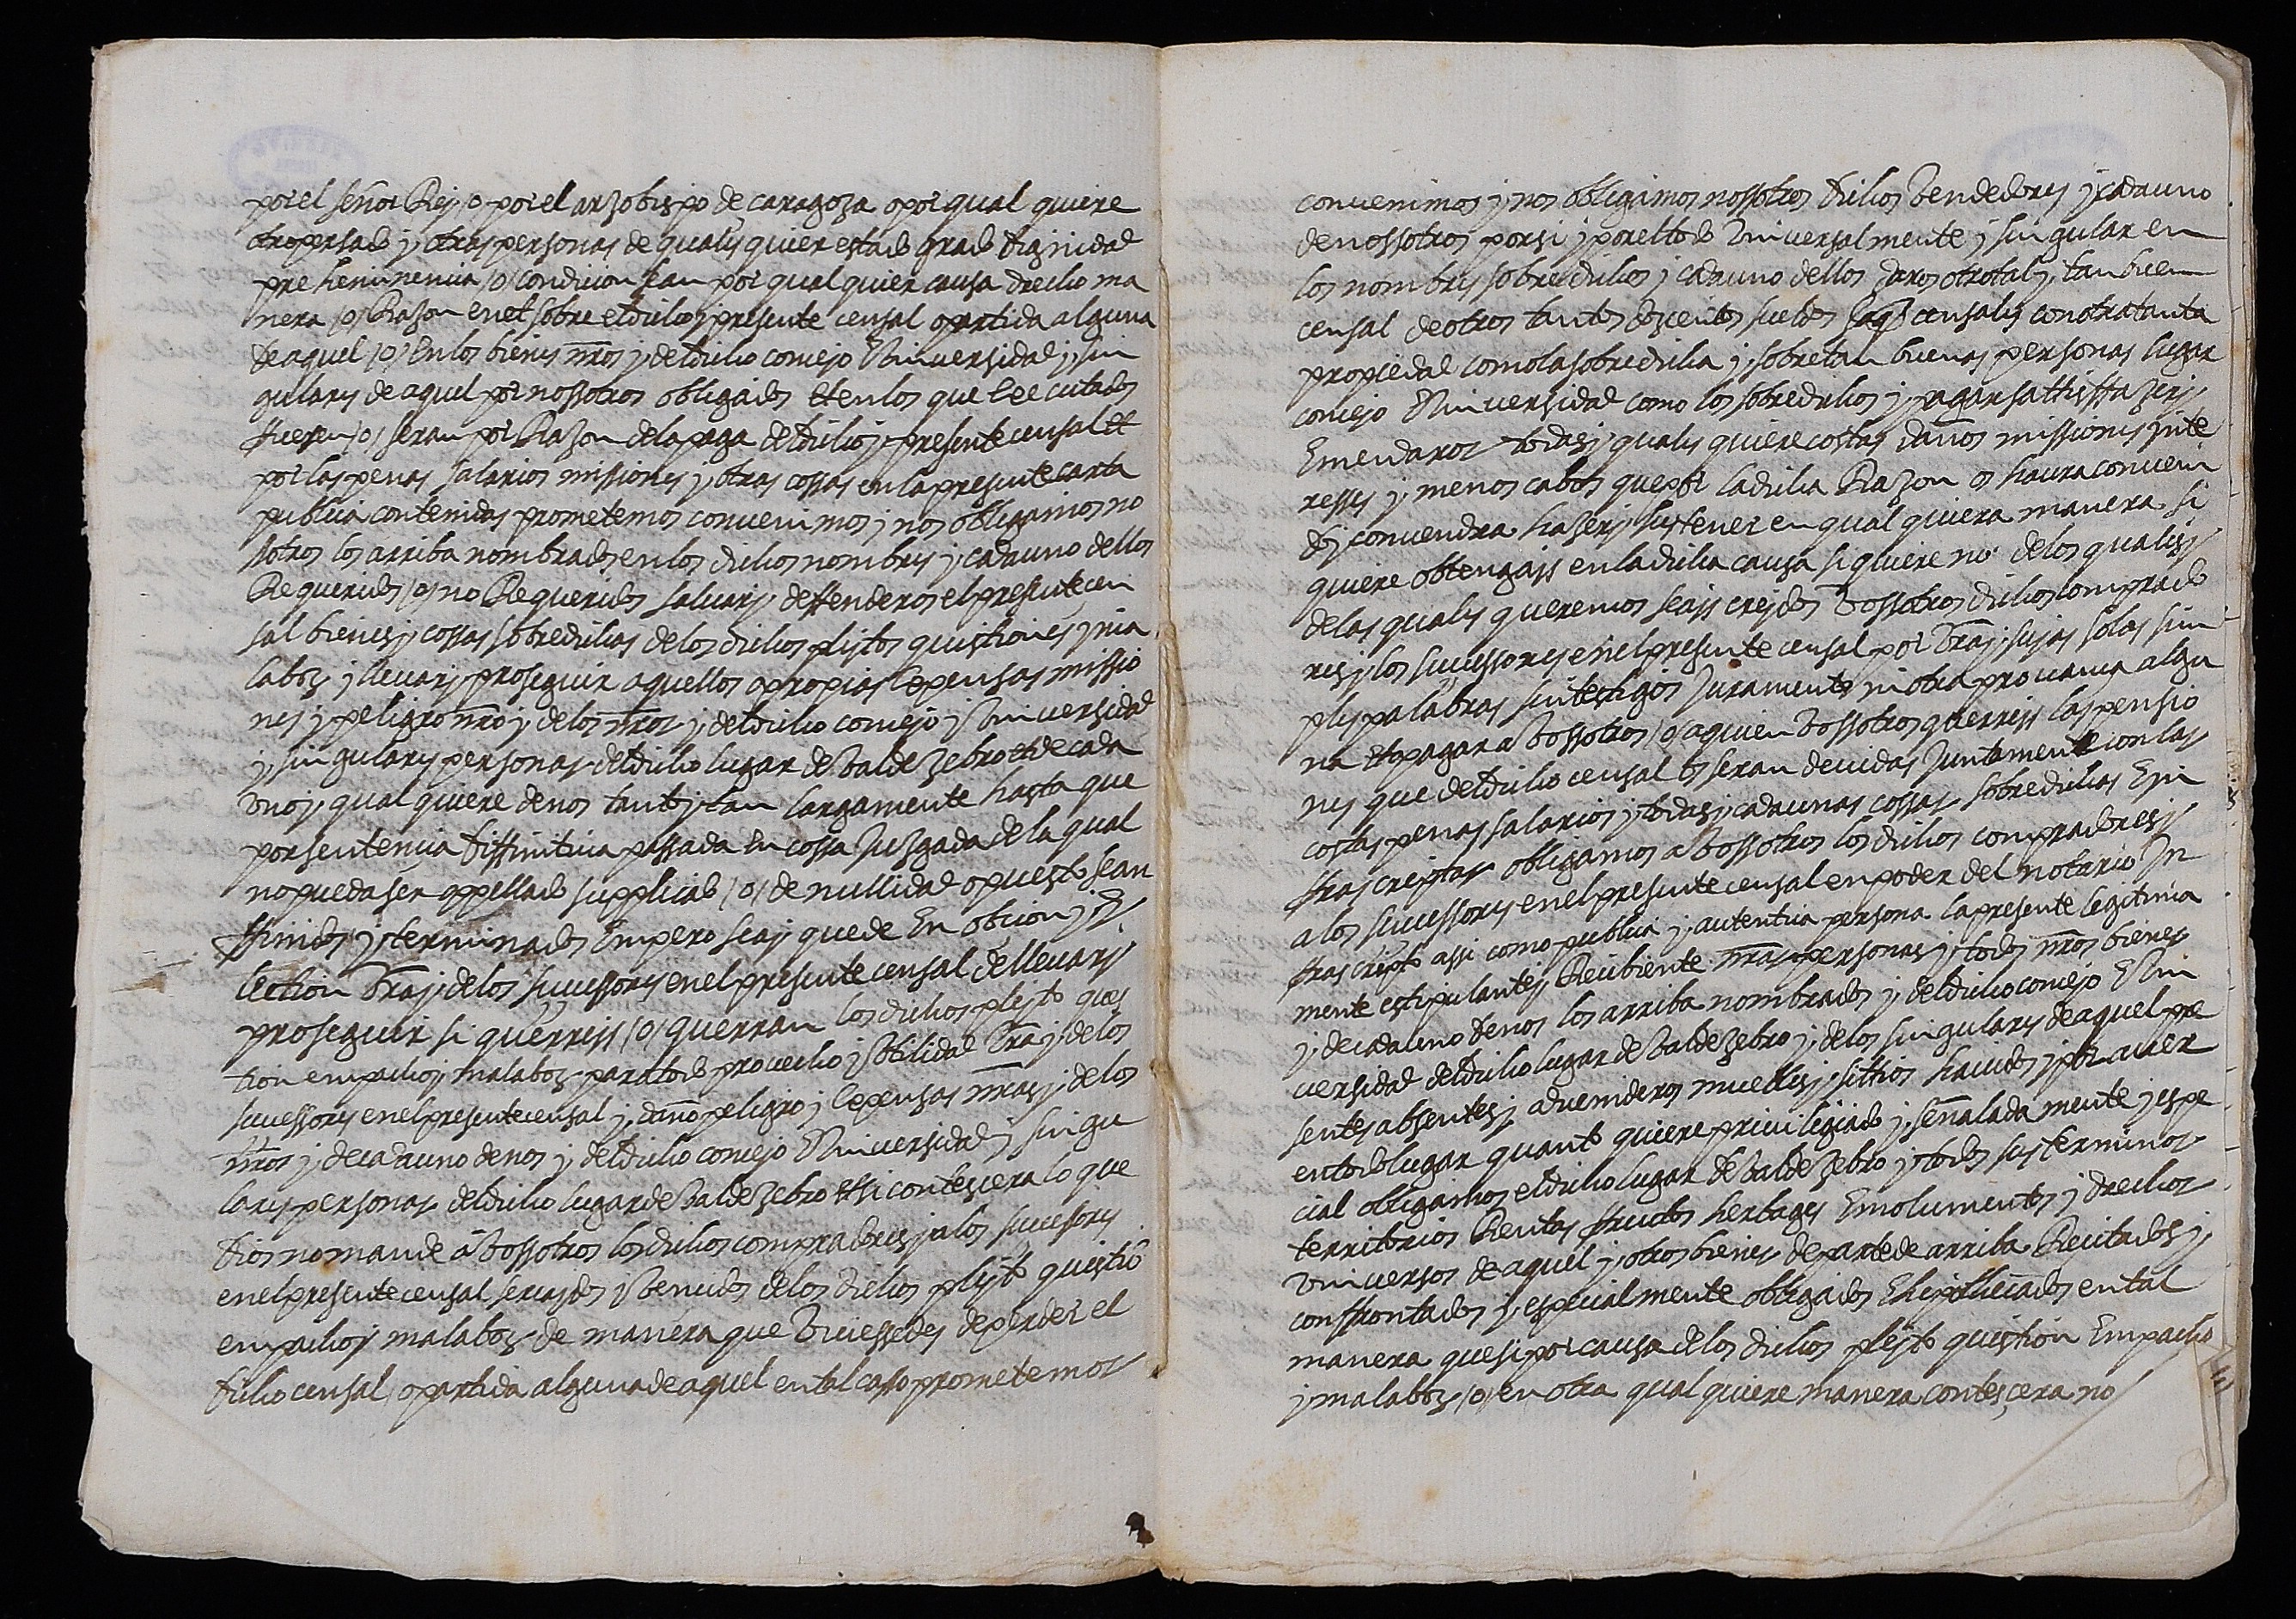 por el señor Rey /o/ por el arzobispo de caragoza o por qual quiere
otro persado y otras personas de quales quier estado grado dignidad
preheminencia /o/ condicion sean por qual quier causa drecho ma
nera /o/ Razon en et sobre el dicho y presente censal o partida alguna
de aquel /o/ en los bienes nros y del dicho concejo Universidad y sin
gulares de aquel por nossotros obligados et en los que execcutados
fuesen /o/ seran por Razon dela paga del dicho y presente censal et
por las penas salarios missiones y otras cossas en la presente carta
publica contenidas prometemos convenimos y nos obligamos no
ssotros los arriba nombrados en los dichos nombres y cada uno dellos
Requeridos /o/ no Requeridos salvar y deffenderos el presente cen
sal bienes y cossas sobredichas de los dichos pleytos quistiones y ma
laboz y llevar y proseguir aquellos a propias expensas missio
nes y peligro nro y de los nros y del dicho concejo y Universidad
y singulares personas del dicho lugar de Valdezebro et de cada
uno y qual quiere de nos tanto y tan largamente hasta que
por sentencia diffinitiva passada en cossa juzgada de la qual
no pueda ser appellado supplicado /o/ de nullidad opuesto sean
ffinidos y terminados Empero sea y quede En obcion y E
lection vra y de los successores en el presente censal de llevar y
proseguir si querreiss /o/ querran los dichos pleyto ques
tion empacho y malaboz para todo provecho y Utilidad vra y de los
successores en el presente censal y daño peligro y expensas nras y de los
nros y de cada uno de nos y del dicho concejo Universidad y singu
lares personas del dicho lugar de Valdezebro et si contescera lo que
dios no mande a vossotros los dichos compradores y a los successores
en el presente censal ser caydos y vencidos de los dichos pleyto questio
empacho y malaboz de manera que uviessedes de perder el
dicho censal /o partida alguna de aquel en tal casso prometemos
convenimos y nos obligamos nossotros dichos vendedores y cada uno
de nossotros por si y por el todo Universalmente y singular en
los nombres sobredichos y cada uno dellos daros otro tal y tan buen
censal de otros tantos docientos sueldos jaqs censales con otra tanta
propiedad como la sobredicha y sobre tan buenas personas lugar
concejo Universidad como los sobredichos y pagar sattisffazer y
Emendaros todas y quales quiere costas daños missiones ynte
resses y menoscabos que por la dicha Razon os havra conveni
do y convendra hazer y sustener en qual quiera manera si
quiere obtengays en la dicha causa si quiere no de los quales y
de las quales queremos seays creydos vossotros dichos comprado
res y los successores en el presente censal por vras y suyas solas sim
ples palabras sin testigos juramento ni otra provanza algu
na Et a pagar a vossotros /o/ a quien vossotros querreiss las pensio
nes que del dicho censal os seran devidas Juntamente con las
costas penas salarios y todas y cada unas cossas sobredichas E yn
ffrascriptas obligamos a vossotros los dichos compradores y
a los successores en el presente censal en poder del notario Jn
ffrascripto assi como publica y autentica persona la presente legitima
mente estipulante y Recibiente nras personas y todos nros bienes
y de cada uno de nos los arriba nombrados y del dicho concejo E Uni
versidad del dicho lugar de Valdezebro y de los singulares de aquel pre
sentes absentes y advenideros muebles y sittios havidos y por aver
en todo lugar quanto quiere privilegiado y señaladamente y espe
cial obligamos el dicho lugar de Valdezebro y todos sus terminos
territorios Rentas fructos herbages Emolumentos y drechos
universos de aquel y otros bienes de parte de arriba Recitados y
conffrontados y especialmente obligados E hipothecados en tal
manera que si por causa de los dichos pleyto question Empacho
y malaboz /o/ en otra qual quiere manera contescera no